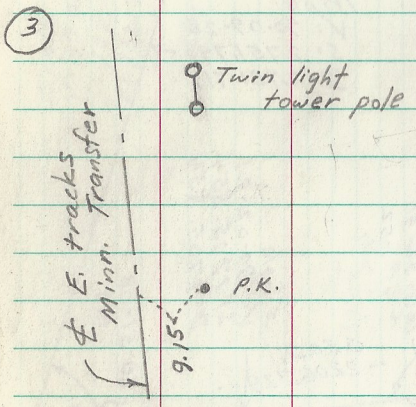 3
Twin light
tower pole
℄ E. tracks
Minn. Transfer
P.K.
9.15